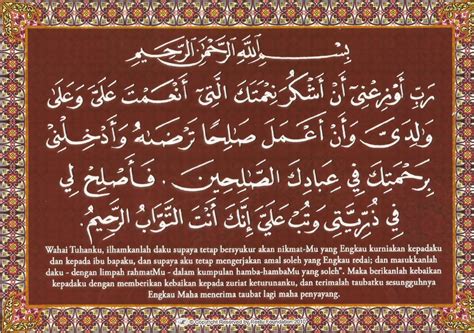 بِسْمِ اللَّهِ الرَّحْمَنِ الرَّحِيمِ
رَبِّ أَوْزِعْنِي أَنْ أَشْكُرَ نِعْمَتَكَ الَّتِي أَنْعَمْتَ عَلَيَّ وَعَلَى
وَالِدَيَّ وَأَنْ أَعْمَلَ صَالِحًا تَرْضَاهُ وَأَدْخِلْنِي
بِرَحْمَتِكَ فِي عِبَادِكَ الصَّالِحِينَ . فَأَصْلِحْ لِي
فِي ذُرِّيَّتِي وَتُبْ عَلَيَّ إِنَّكَ أَنْتَ التَّوَّابُ الرَّحِيمُ.
Wahai Tuhanku, ilhamkanlah daku supaya tetap bersyukur akan nikmat-Mu yang Engkau kurniakan kepadaku
dan kepada ibu bapaku, dan supaya aku tetap mengerjakan amal soleh yang Engkau redai; dan masukkanlah
daku - dengan limpah rahmatMu - dalam kumpulan hamba-hambaMu yang soleh". Maka berikanlah kebaikan
kepadaku dengan memberikan kebaikan kepada zuriat keturunanku, dan terimalah taubatku sesungguhnya
Engkau Maha menerima taubat lagi maha penyayang.
© Copyright Reserved by
2012